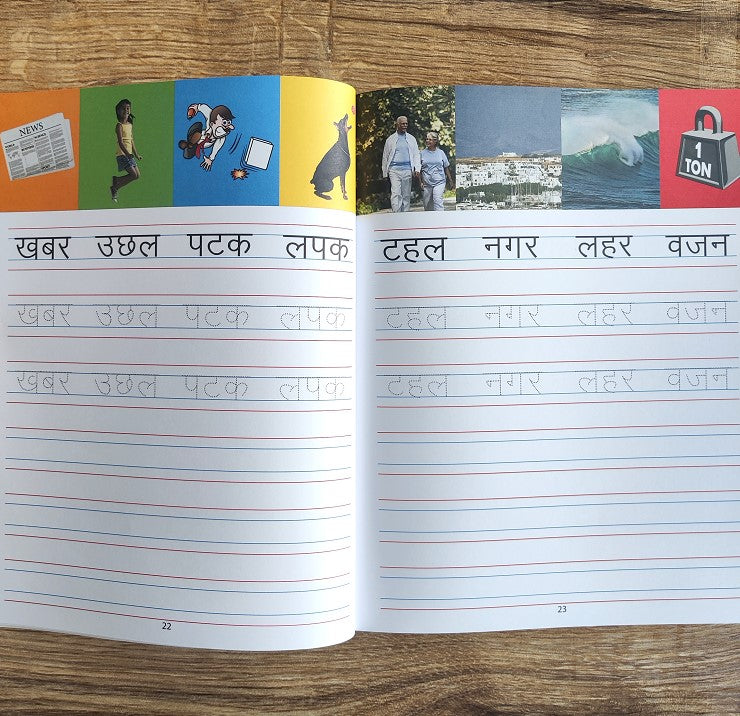 NEWS
1
TON
खबर उछल पटक लपक
खबर उछल पटक लपक
खबर उछल पटक लपक
22
टहल नगर लहर वजन
टहल नगर लहर वजन
टहल नगर लहर वजन
23